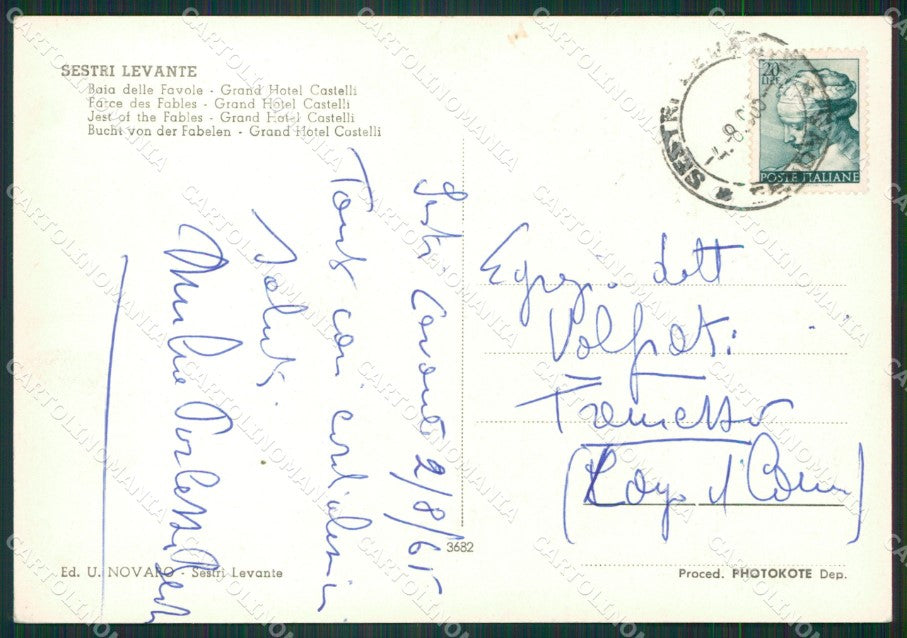 SESTRI LEVANTE
Baia delle Favole - Grand Hotel Castelli
Farce des Fables - Grand Hotel Castelli
Jest of the Fables - Grand Hotel Castelli
Bucht von der Fabelen - Grand Hotel Castelli
SESTRI LEVANTE
20
LIRE
POSTE ITALIANE
Sestri Levante 2/8/65
Tanti cari cordialissimi
saluti
Egreg. dott
Volpati
Tremezzo
(Lago d'Como)
3682
Ed. U. NOVARO - Sestri Levante
Proced. PHOTOKOTE Dep.
CARTOLINOMANIA